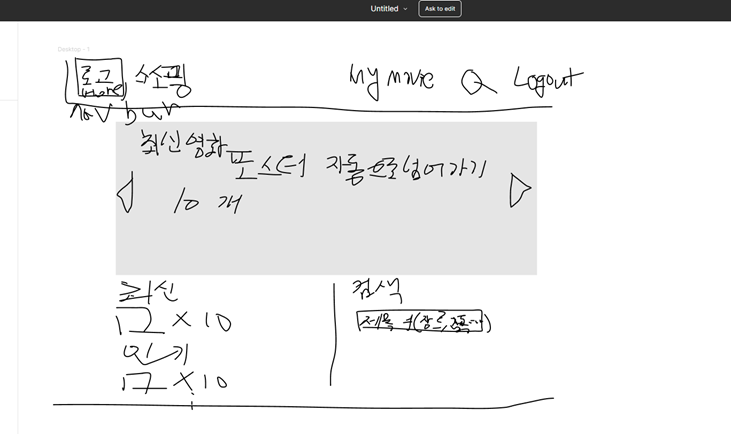 Untitled
Ask to edit
Desktop - 1
로고 쇼핑 My Movie Logout
Home
nav bar
최신영화 포스터 자동으로 넘어가기
10 개
최신
x 10
인기
x 10
검색
제목